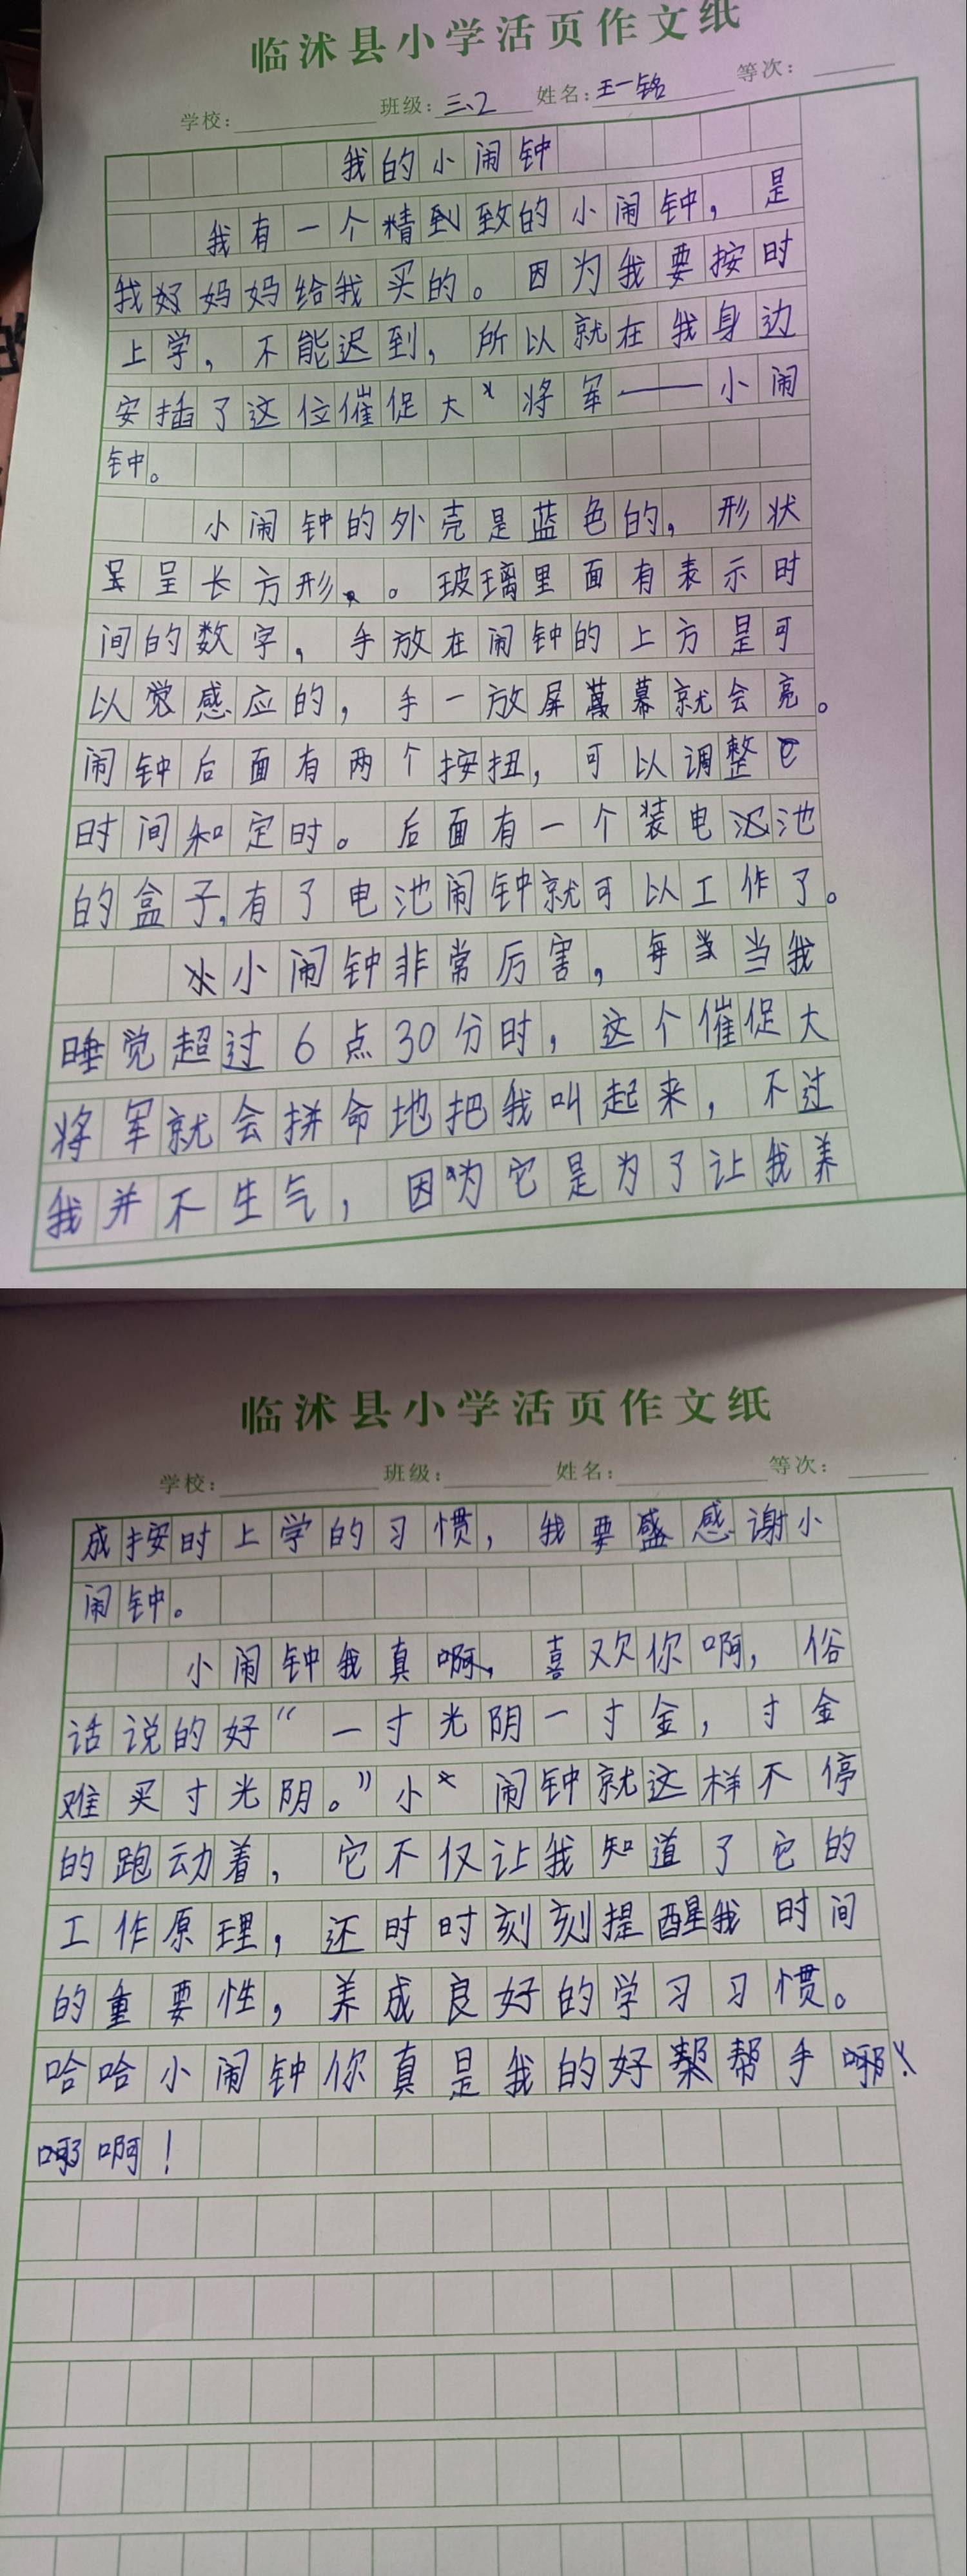 临沭县小学活页作文纸
学校： 班级：三、2 姓名：王一铭 等次：
我的小闹钟
我有一个精致的小闹钟，是
我好妈妈给我买的。因为我要按时
上学，不能迟到，所以就在我身边
安插了这位催促大将军——小闹
钟。
小闹钟的外壳是蓝色的，形状
呈长方形。玻璃里面有表示时
间的数字，手放在闹钟的上方是可
以感应的，手一放屏幕就会亮。
闹钟后面有两个按扭，可以调整
时间和定时。后面有一个装电池
的盒子，有了电池闹钟就可以工作了。
小闹钟非常厉害，每当我
睡觉超过6点30分时，这个催促大
将军就会拼命地把我叫起来，不过
我并不生气，因为它是为了让我养
临沭县小学活页作文纸
学校： 班级： 姓名： 等次：
成按时上学的习惯，我要感谢小
闹钟。
小闹钟我真啊，喜欢你啊，俗
话说的好“一寸光阴一寸金，寸金
难买寸光阴。”小闹钟就这样不停
的跑动着，它不仅让我知道了它的
工作原理，还时时刻刻提醒我时间
的重要性，养成良好的学习习惯。
哈哈小闹钟你真是我的好帮手
啊！